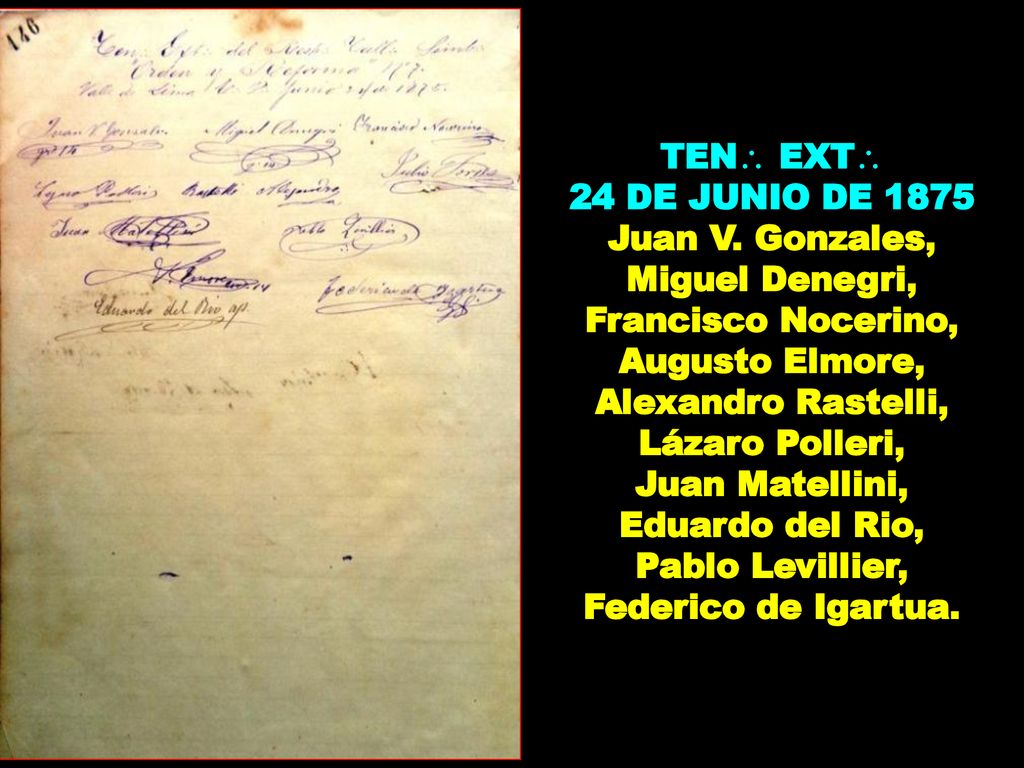 146
Ten∴ Ext∴ del Resp∴ Tall∴ Simb∴
"Orden y Reforma" Nº7.
Valle de Lima E. V. Junio 24 de 1875.
Juan V Gonzales
gr∴ 14
Miguel Denegri
Francisco Nocerino
Julio
Lázaro Polleri
Rastelli Alejandro
Juan Matellini
Pablo Levillier
Elmore
Federico de Igartua
Eduardo del Rio ap.
TEN∴ EXT∴
24 DE JUNIO DE 1875
Juan V. Gonzales,
Miguel Denegri,
Francisco Nocerino,
Augusto Elmore,
Alexandro Rastelli,
Lázaro Polleri,
Juan Matellini,
Eduardo del Rio,
Pablo Levillier,
Federico de Igartua.